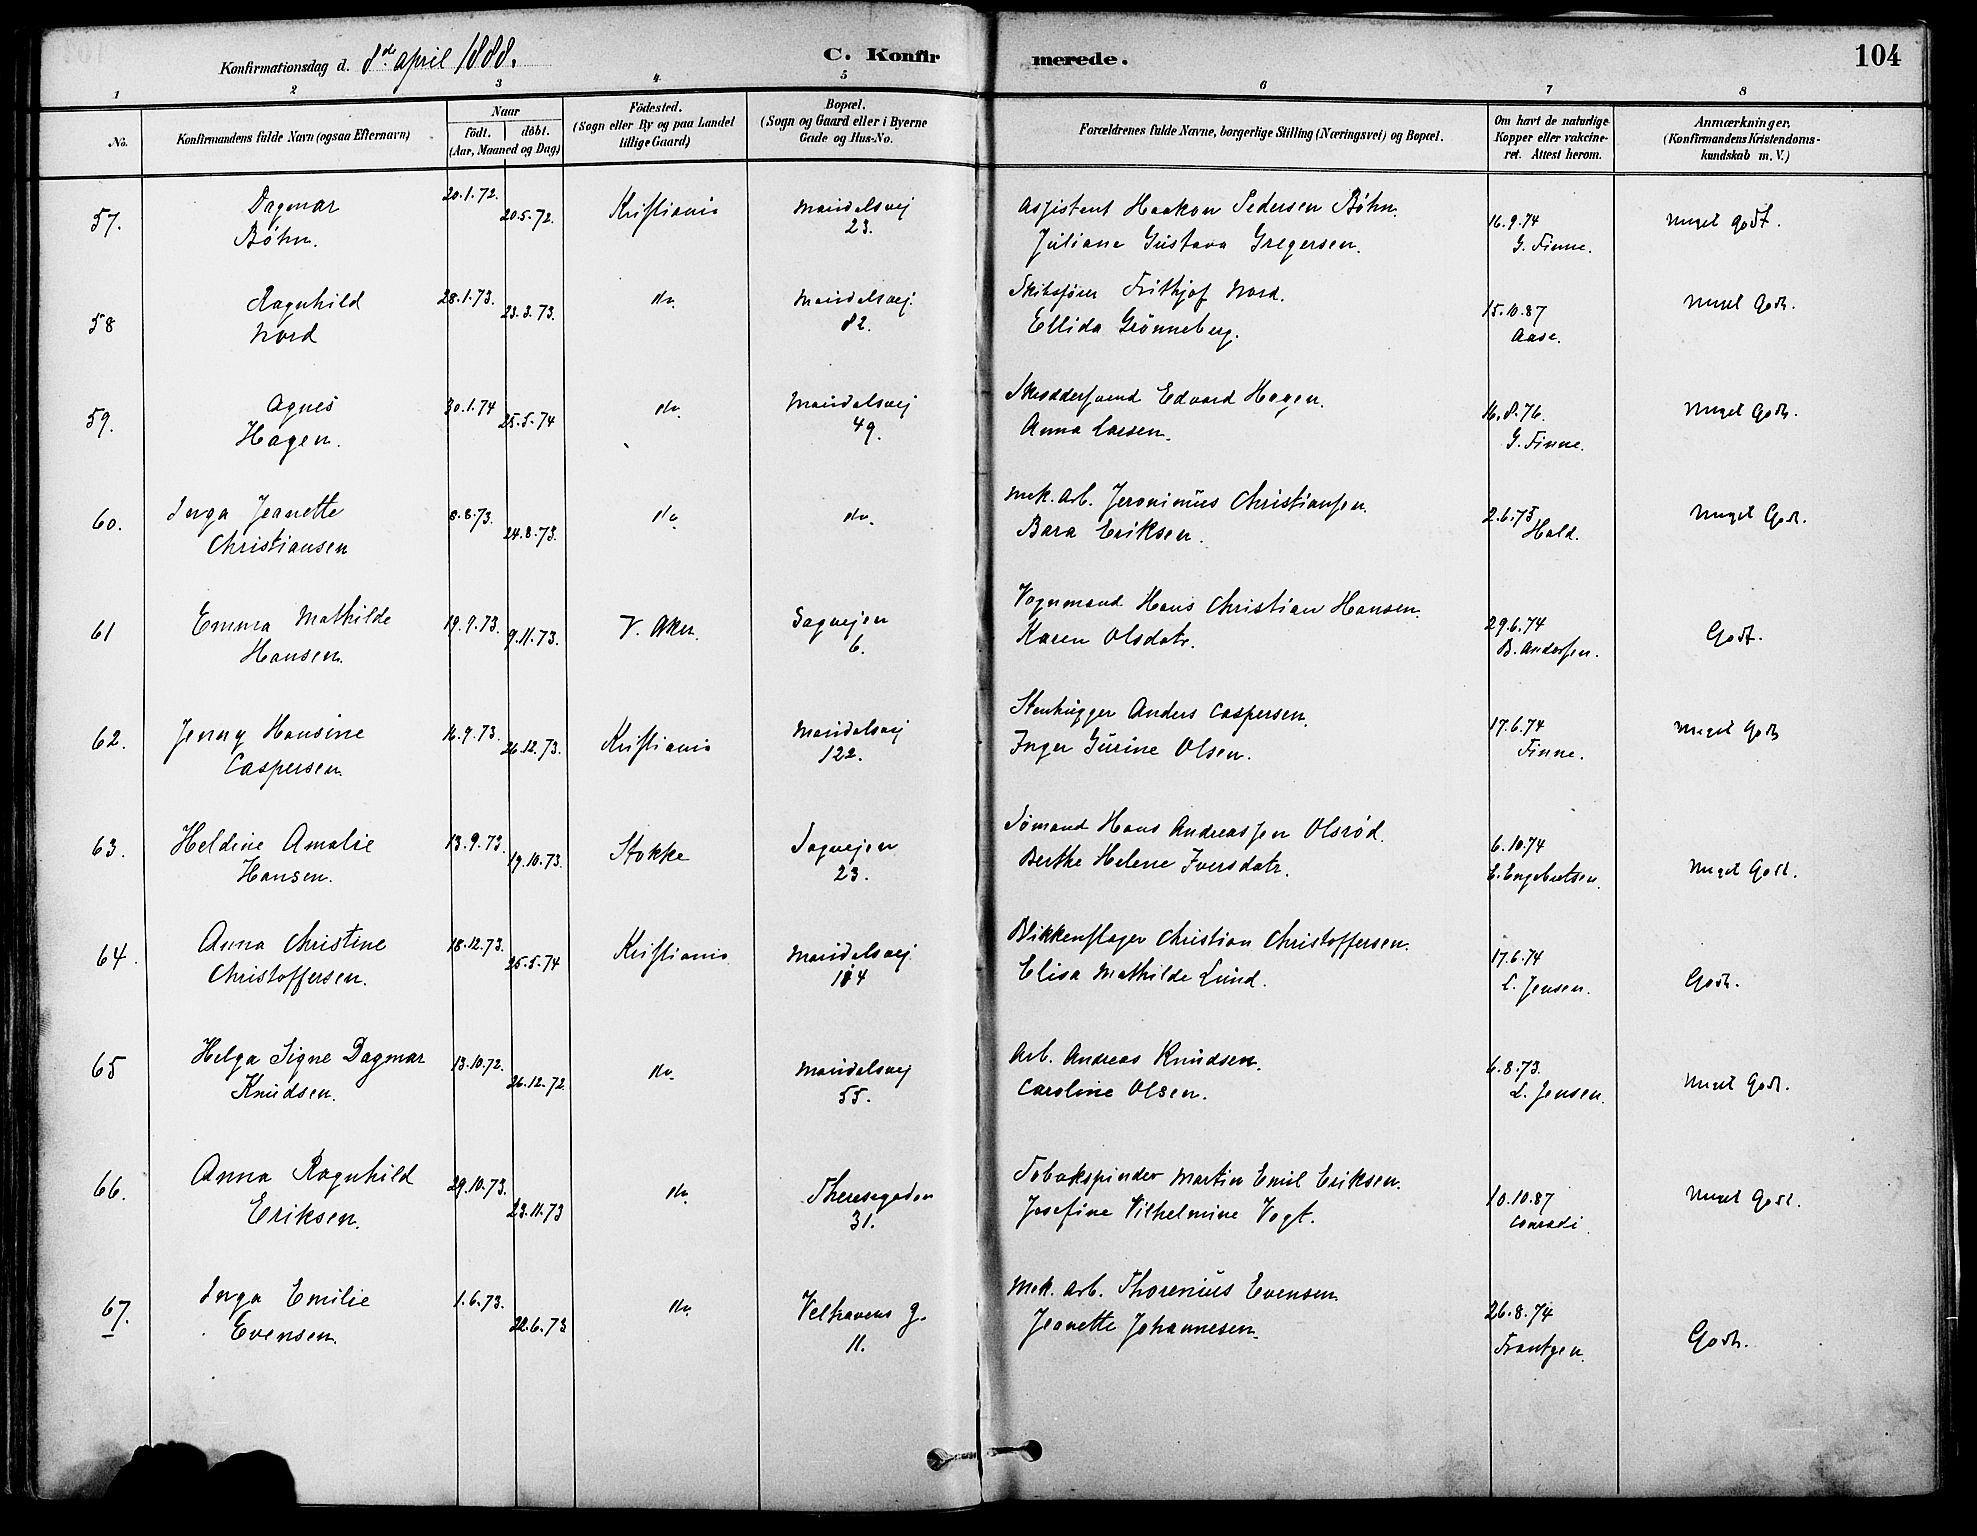 Konfirmationsdag d. 8de april 1888.
C. Konfirmerede.
104
1 2 3 4 5 6 7 8
No.
Konfirmandens fulde Navn (ogsaa Efternavn)
Naar
födt. döbt.
(Aar, Maaned og Dag)
Födested.
(Sogn eller By og paa Landet
tillige Gaard)
Bopæl.
(Sogn og Gaard eller i Byerne
Gade og Hus-No.
Forældrenes fulde Navne, borgerlige Stilling (Næringsvei) og Bopæl.
Om havt de naturlige
Kopper eller vakcine-
ret. Attest herom.
Anmærkninger.
(Konfirmandens Kristendoms-
kundskab m. V.)
57. Dagmar 20.1.72. 20.5.72. Kristiania Maridalsvej Assistent Haakon Pedersen Bøhn. 16.9.74 Meget godt.
Bøhn. 23. Juliane Gustava Gregersen. G. Finne.
58 Ragnhild 28.1.73. 23.3.73. do. Maridalsvej. Skibsfører Frithjof Nord. 15.10.87 Meget Godt.
Nord 82. Ellida Grønneberg. Aase.
59. Agnes 30.1.74 25.5.74 do. Maridalsvej Edvard Hagen. 16.8.76. Meget Godt.
Hagen. 49. Anna Larsen. G. Finne.
60. Inga Jeanette 8.8.73. 24.8.73. do. do. Mek. Arb. Jeronimus Christiansen. 2.6.75 Meget Godt.
Christiansen Bara Eriksen. Hald.
61 Emma Mathilde 19.9.73. 9.11.73. V. Aker. Sagvejen Vognmand Hans Christian Hansen. 29.6.74 Godt.
Hansen. 6. Karen Olsdatr. B. Andersen.
62. Jenny Hansine 16.9.73. 26.12.73. Kristiania Maridalsvej Stenhugger Anders Caspersen. 17.6.74 Meget Godt
Caspersen. 122. Inger Gurine Olsen. Finne.
63. Heldine Amalie 13.9.73. 19.10.73. Stokke Sagvejen Sømand Hans Andreassen Olsrød. 6.10.74 Meget Godt.
Hansen. 23. Berthe Helene Iversdatr. E. Engebretsen.
64. Anna Christine 18.12.73. 25.5.74 Kristiania Maridalsvej. Blikkenslager Christian Christoffersen. 17.6.74 Godt.
Christoffersen. 114 Elisa Mathilde Lund. L. Jensen.
65 Helga Signe Dagmar 13.10.72. 26.12.72. do. Maridalsvej Arb. Andreas Knudsen. 6.8.73. Meget Godt.
Knudsen. 55. Caroline Olsen. L. Jensen.
66. Anna Ragnhild 29.10.73. 23.11.73 do. Theresegaden Tobakspinder Martin Emil Eriksen. 10.10.87 Meget Godt.
Eriksen. 31. Josefine Vilhelmine Vogt. Conradi.
67. Inga Emilie 1.6.73. 22.6.73 do. Velhavens g. Mek. Arb. Thorenius Evensen. 26.8.74 Godt.
Evensen. 11. Jeanette Johannesen. Frantzen.